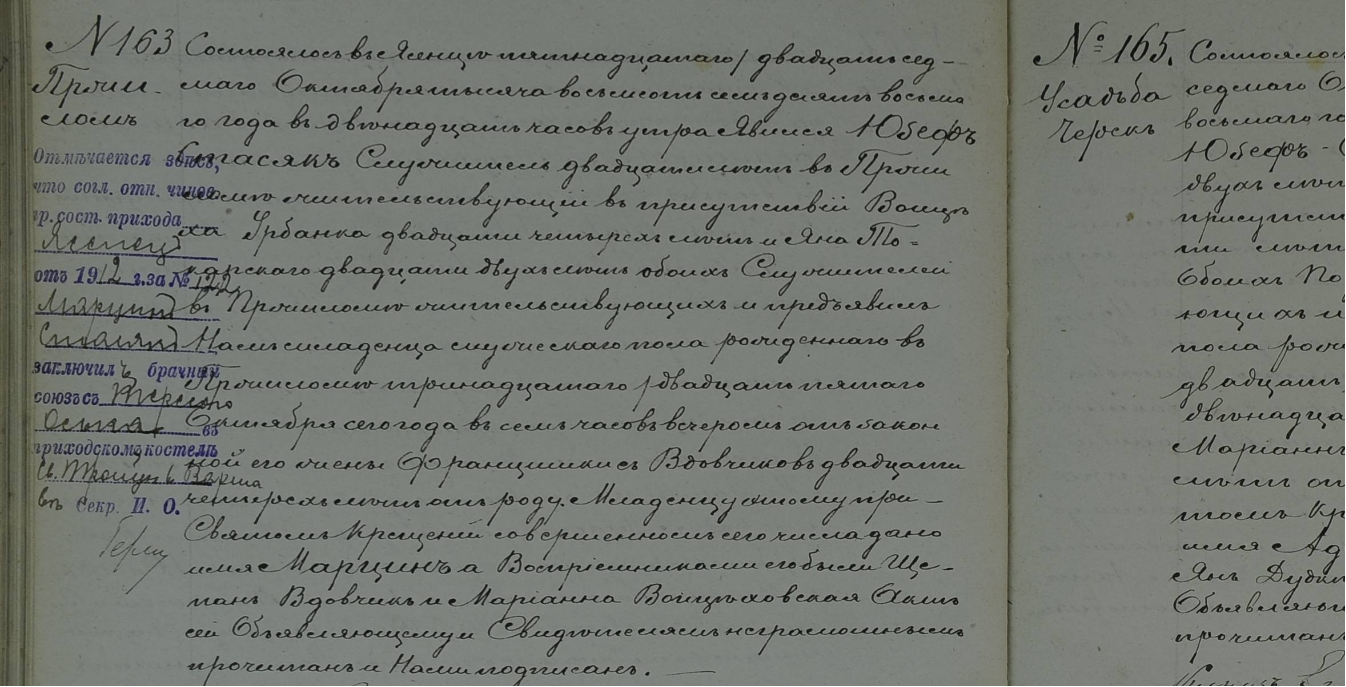 N 163
Прчи-
ломъ
Состоялось въ Ясенцѣ пятнадцатаго / двадцать сед-
маго Октября тысяча восемьсотъ семьдсятъ восьма
го года въ двѣнадцать часовъ утра Явился Юзефъ
Стасякъ Служитель двадцати лѣтъ въ Прчи
ломѣ жительствующій въ присутствіи Войцѣ
ха Урбанка двадцати четырехъ лѣтъ и Яна То=
карскаго двадцати двухъ лѣтъ обоихъ Служителей
въ Прчиломѣ жительствующихъ и предъявилъ
Намъ младенца мужескаго пола рожденнаго въ
Прчиломѣ тринадцатаго / двадцать пятаго
Октября сего года въ семь часовъ вечеромъ отъ закон
ной его жены Францишки съ Вдовчиковъ двадцати
четерехъ лѣтъ отъ роду. Младенцу этому при-
Святомъ Крещеніи совершенномъ сего числа дано
имя Марцинъ а Воспріемниками его были Ще-
панъ Вдовчикъ и Маріанна Войцѣховская Актъ
сей Объявляющему и Свидѣтелямъ неграмотнымъ
прочитанъ и Нами подписанъ. —
Отмѣчается здѣсь,
что согл. отн. чинов.
гр. сост. прихода
Ясенец
отъ 1912 г. за № 122
Марцинъ
Стасякъ
заключилъ брачный
союзъ съ
въ
приходскомъ костелѣ
Св. Троицы в Варша
въ Секр. И. О.
№ 165.
Усадьба
Черскъ
Состоялос
седмаго О
восьмаго го
Юзефъ
двухъ лѣт
присутст
ти лѣт
Обоихъ По
ющихъ и
пола рож
двадцать
двѣнадца
Маріанн
лѣтъ от
томъ Кр
имя Ад
Янъ Дудк
Объявляю
прочитан